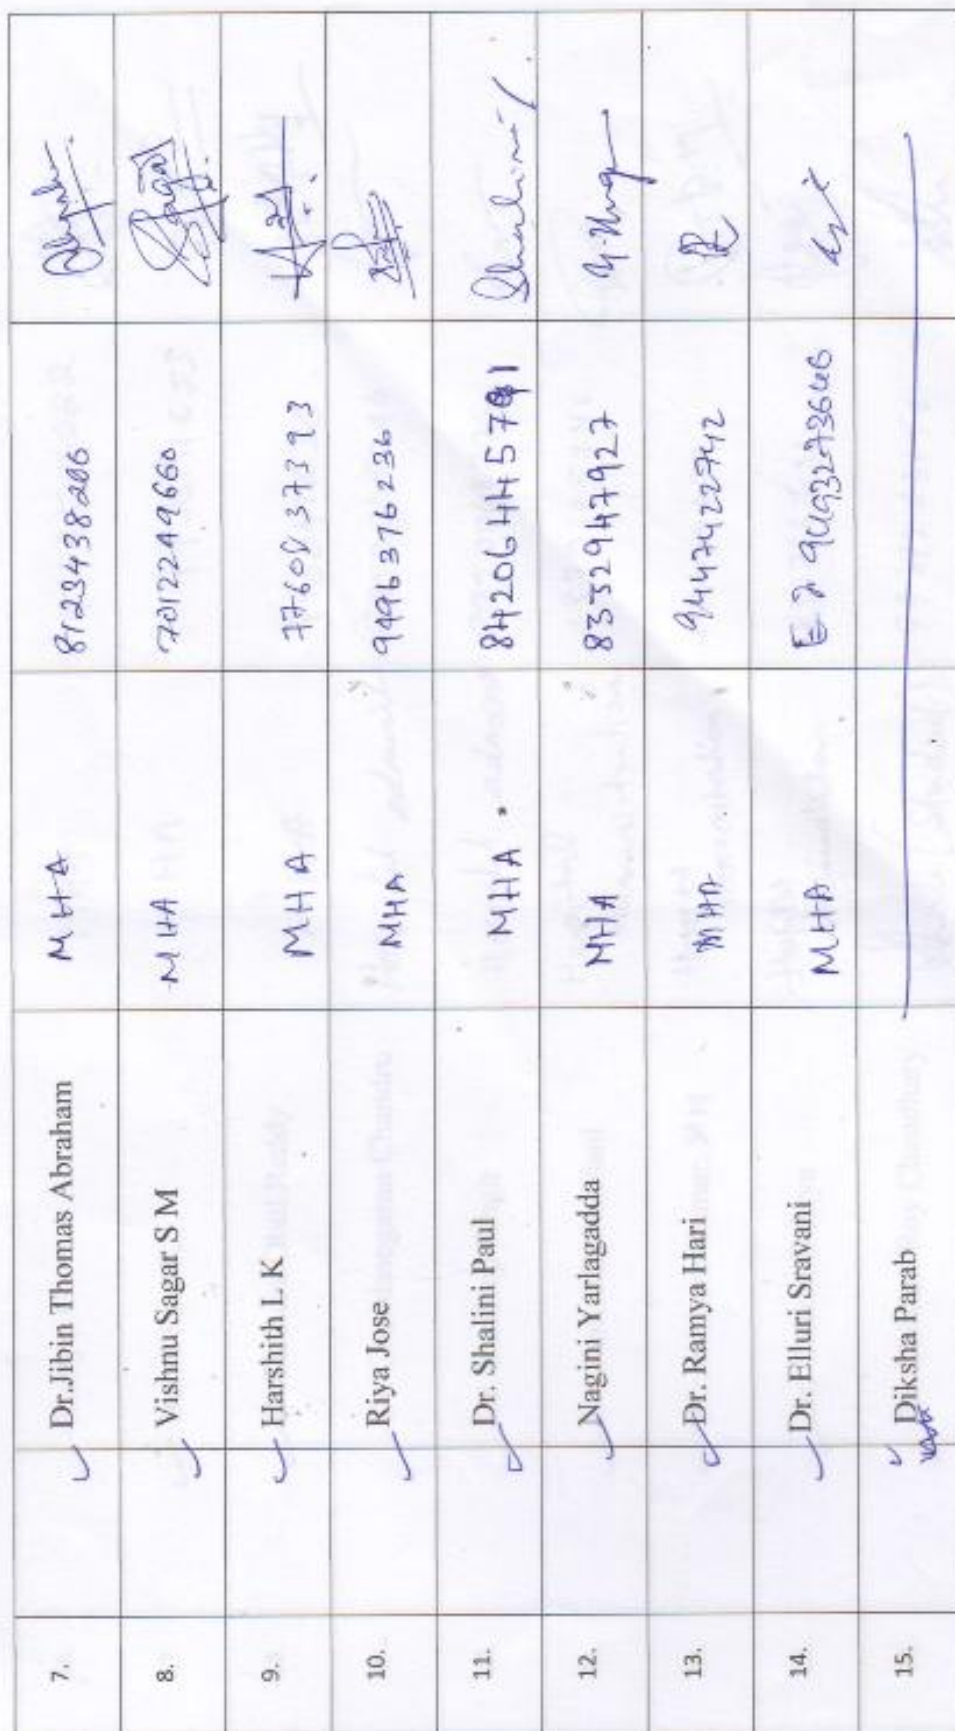 7. Dr.Jibin Thomas Abraham MHA 8123438206
8. Vishnu Sagar S M MHA 7012249660 Sagar
9. Harshith L K MHA 7760837393
10. Riya Jose MHA 9496376236
11. Dr. Shalini Paul MHA 8420644579 Shalini
12. Nagini Yarlagadda MHA 83332947927 Y. Nag
13. Dr. Ramya Hari MHA 9447422742
14. Dr. Elluri Sravani MHA 9493273646
15. Diksha Parab